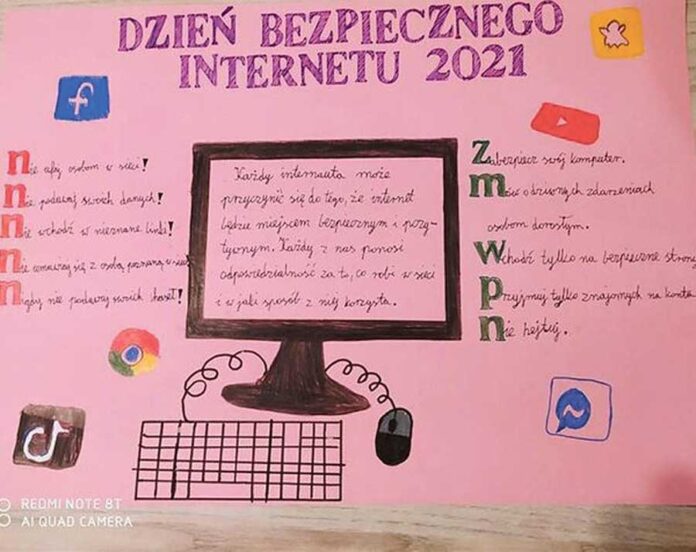 DZIEŃ BEZPIECZNEGO
INTERNETU 2021
f
Nie ufaj osobom w sieci!
Nie podawaj swoich danych!
Nie wchodź w nieznane linki!
Nie umawiaj się z osobą poznaną w sieci
Nigdy nie podawaj swoich haseł!
Każdy internauta może
przyczynić się do tego, że internet
będzie miejscem bezpiecznym i pozy-
tywnym. Każdy z nas ponosi
odpowiedzialność za to, co robi w sieci
i w jaki sposób z niej korzysta.
Zabezpiecz swój komputer.
Mów o dziwnych zdarzeniach
osobom dorosłym.
Wchodź tylko na bezpieczne strony
Przyjmuj tylko znajomych na konta
Nie hejtuj.
REDMI NOTE 8T
AI QUAD CAMERA